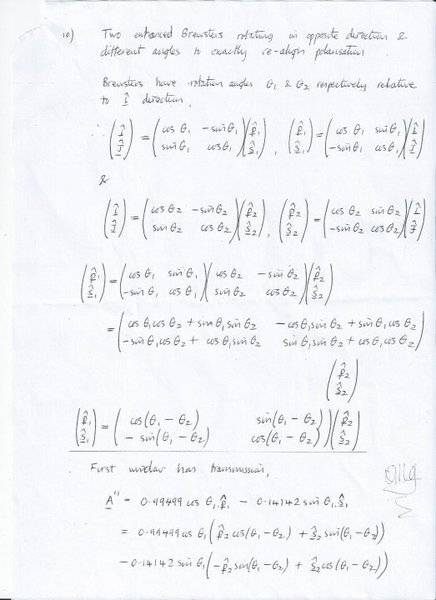 10) Two enhanced Brewsters rotating in opposite direction &
different angles to exactly re-align polarisation
Brewsters have rotation angles θ₁ & θ₂ respectively relative
to Î direction.
∴ (Î Ĵ) = (cos θ₁ -sin θ₁ sin θ₁ cos θ₁)(p̂₁ ŝ₁), (p̂₁ ŝ₁) = (cos θ₁ sin θ₁ -sin θ₁ cos θ₁)(Î Ĵ)
&
(Î Ĵ) = (cos θ₂ -sin θ₂ sin θ₂ cos θ₂)(p̂₂ ŝ₂), (p̂₂ ŝ₂) = (cos θ₂ sin θ₂ -sin θ₂ cos θ₂)(Î Ĵ)
(p̂₁ ŝ₁) = (cos θ₁ sin θ₁ -sin θ₁ cos θ₁)(cos θ₂ -sin θ₂ sin θ₂ cos θ₂)(p̂₂ ŝ₂)
= (cos θ₁ cos θ₂ + sin θ₁ sin θ₂ -cos θ₁ sin θ₂ + sin θ₁ cos θ₂
-sin θ₁ cos θ₂ + cos θ₁ sin θ₂ sin θ₁ sin θ₂ + cos θ₁ cos θ₂)
(p̂₂ ŝ₂)
(p̂₁ ŝ₁) = (cos(θ₁ - θ₂) sin(θ₁ - θ₂) -sin(θ₁ - θ₂) cos(θ₁ - θ₂))(p̂₂ ŝ₂)
First window has transmission,
A'' = 0.99499 cos θ₁ p̂₁ - 0.14142 sin θ₁ ŝ₁
= 0.99499 cos θ₁ (p̂₂ cos(θ₁ - θ₂) + ŝ₂ sin(θ₁ - θ₂))
-0.14142 sin θ₁ (-p̂₂ sin(θ₁ - θ₂) + ŝ₂ cos(θ₁ - θ₂))